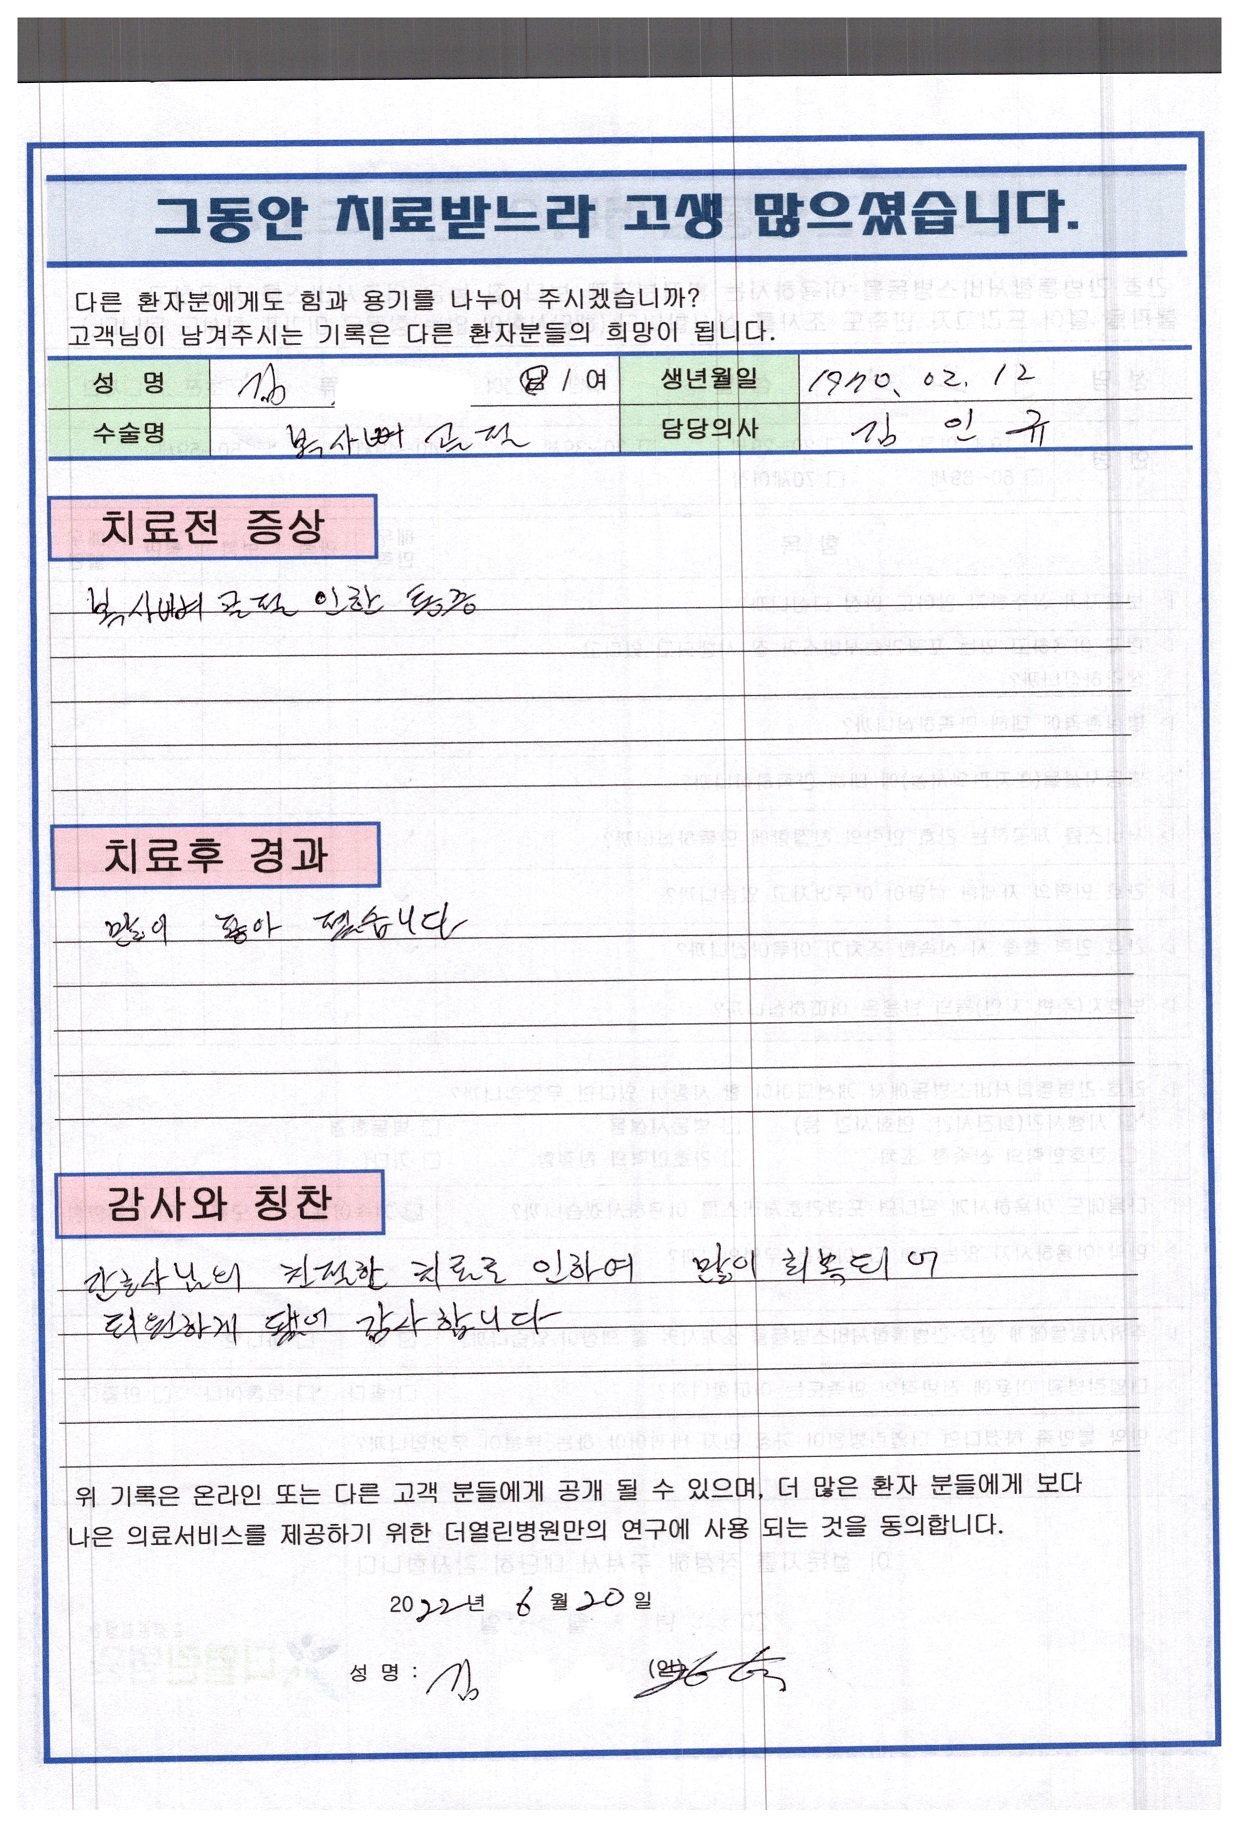 그동안 치료받느라 고생 많으셨습니다.
다른 환자분에게도 힘과 용기를 나누어 주시겠습니까?
고객님이 남겨주시는 기록은 다른 환자분들의 희망이 됩니다.
성 명 김 남 / 여 생년월일 1970. 02. 12
수술명 복사뼈 골절 담당의사 김 인 규
치료전 증상
복사뼈 골절 인한 통증
치료후 경과
많이 좋아 졌습니다
감사와 칭찬
간호사님의 친절한 치료로 인하여 많이 회복되어
퇴원하게 됐어 감사합니다
위 기록은 온라인 또는 다른 고객 분들에게 공개 될 수 있으며, 더 많은 환자 분들에게 보다
나은 의료서비스를 제공하기 위한 더열린병원만의 연구에 사용 되는 것을 동의합니다.
2022년 6월 20일
성 명 : 김 (인)